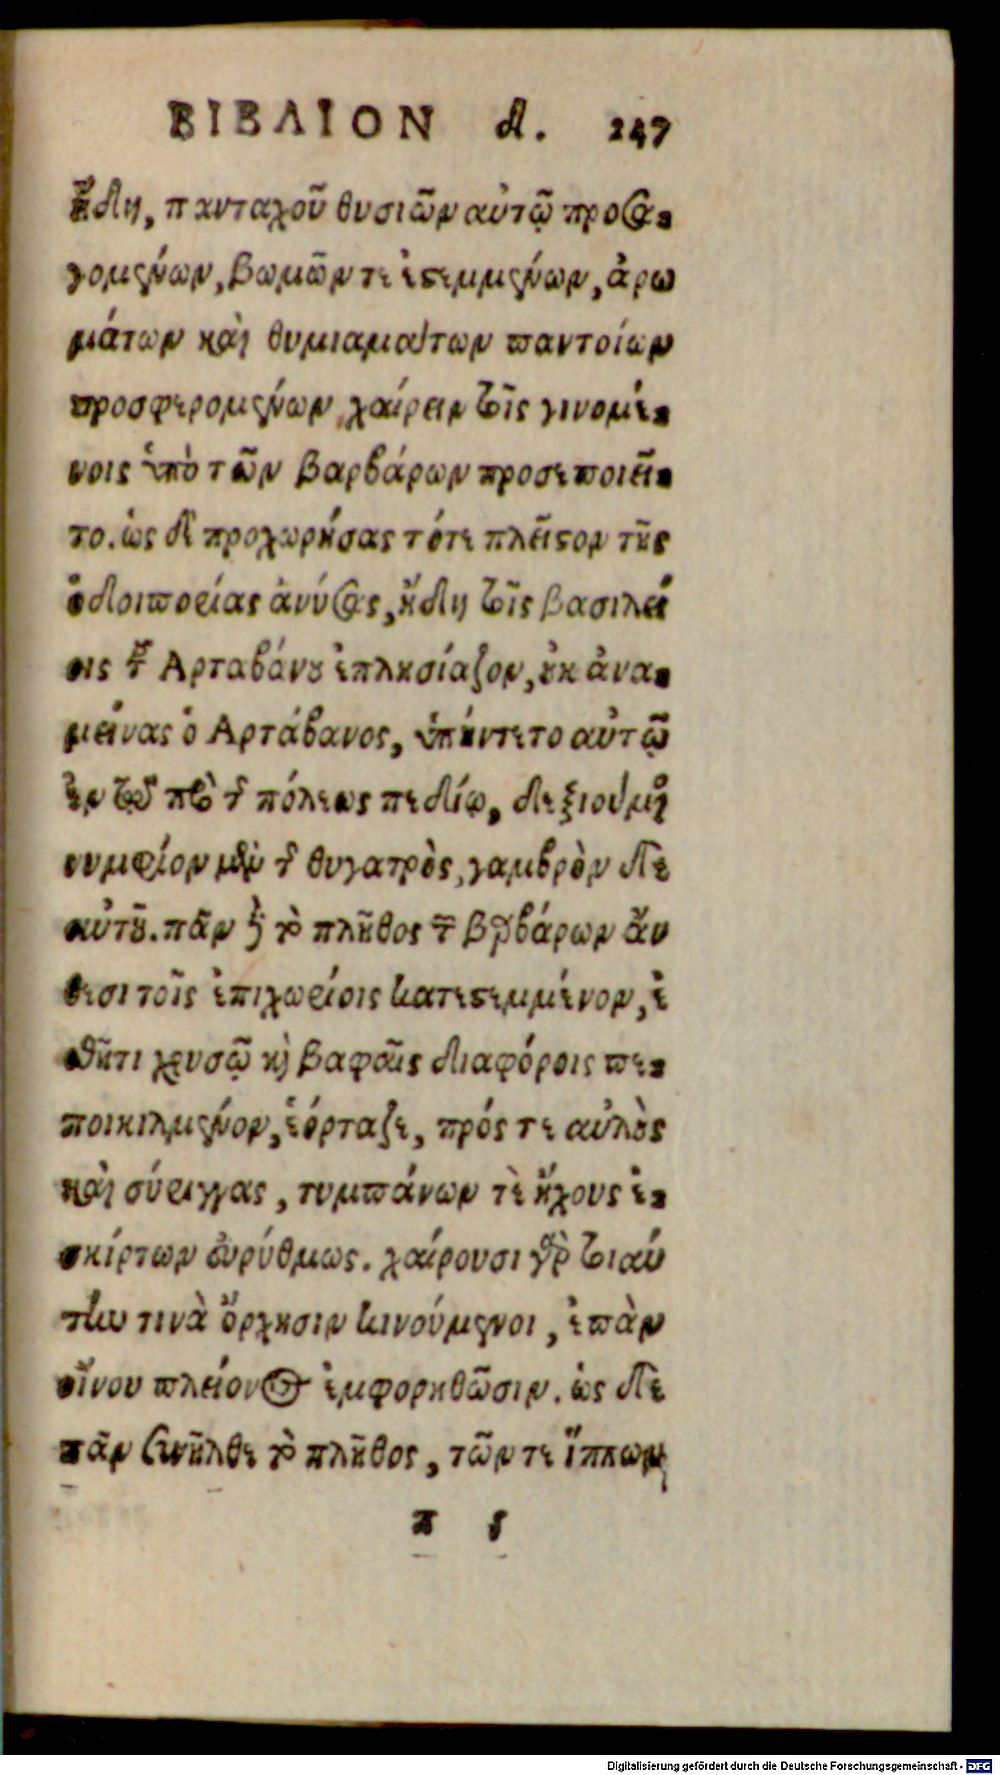 ΒΙΒΛΙΟΝ δ. 247
ἤδη, πανταχοῦ θυσιῶν αὐτῷ προσα-
γομένων, βωμῶν τε ἐστεμμένων, ἀρω
μάτων καὶ θυμιαμάτων παντοίων
προσφερομένων, χαίρειν τοῖς γινομέ-
νοις ὑπὸ τῶν βαρβάρων προσεποιεῖ-
το. ὡς δὲ προχωρήσας τότε πλεῖστον τῆς
ὁδοιπορίας ἀνύσας, ἤδη τοῖς βασιλεί
οις τοῦ Αρταβάνου ἐπλησίαζον, οὐκ ἀνα-
μείνας ὁ Αρτάβανος, ὑπήντετο αὐτῷ
ἐν τῷ πρὸ τῆς πόλεως πεδίῳ, δεξιούμενος
νυμφίον μὲν τῆς θυγατρὸς, γαμβρὸν δὲ
αὐτοῦ. πᾶν δὲ τὸ πλῆθος τῶν βαρβάρων ἄν
θεσι τοῖς ἐπιχωρίοις κατεστεμμένον, ἐ
σθῆτι χρυσῷ καὶ βαφαῖς διαφόροις πε-
ποικιλμένον, ἑόρταζε, πρός τε αὐλοὺς
καὶ σύριγγας, τυμπάνων τὲ ἤχους ἐ-
σκίρτων εὐρύθμως. χαίρουσι γὰρ τοιαύ
την τινὰ ὄρχησιν κινούμενοι, ἐπὰν
οἴνου πλείονος ἐμφορηθῶσιν. ὡς δὲ
πᾶν συνῆλθε τὸ πλῆθος, τῶν τε ἵππων
π 5
Digitalisierung gefördert durch die Deutsche Forschungsgemeinschaft - DFG